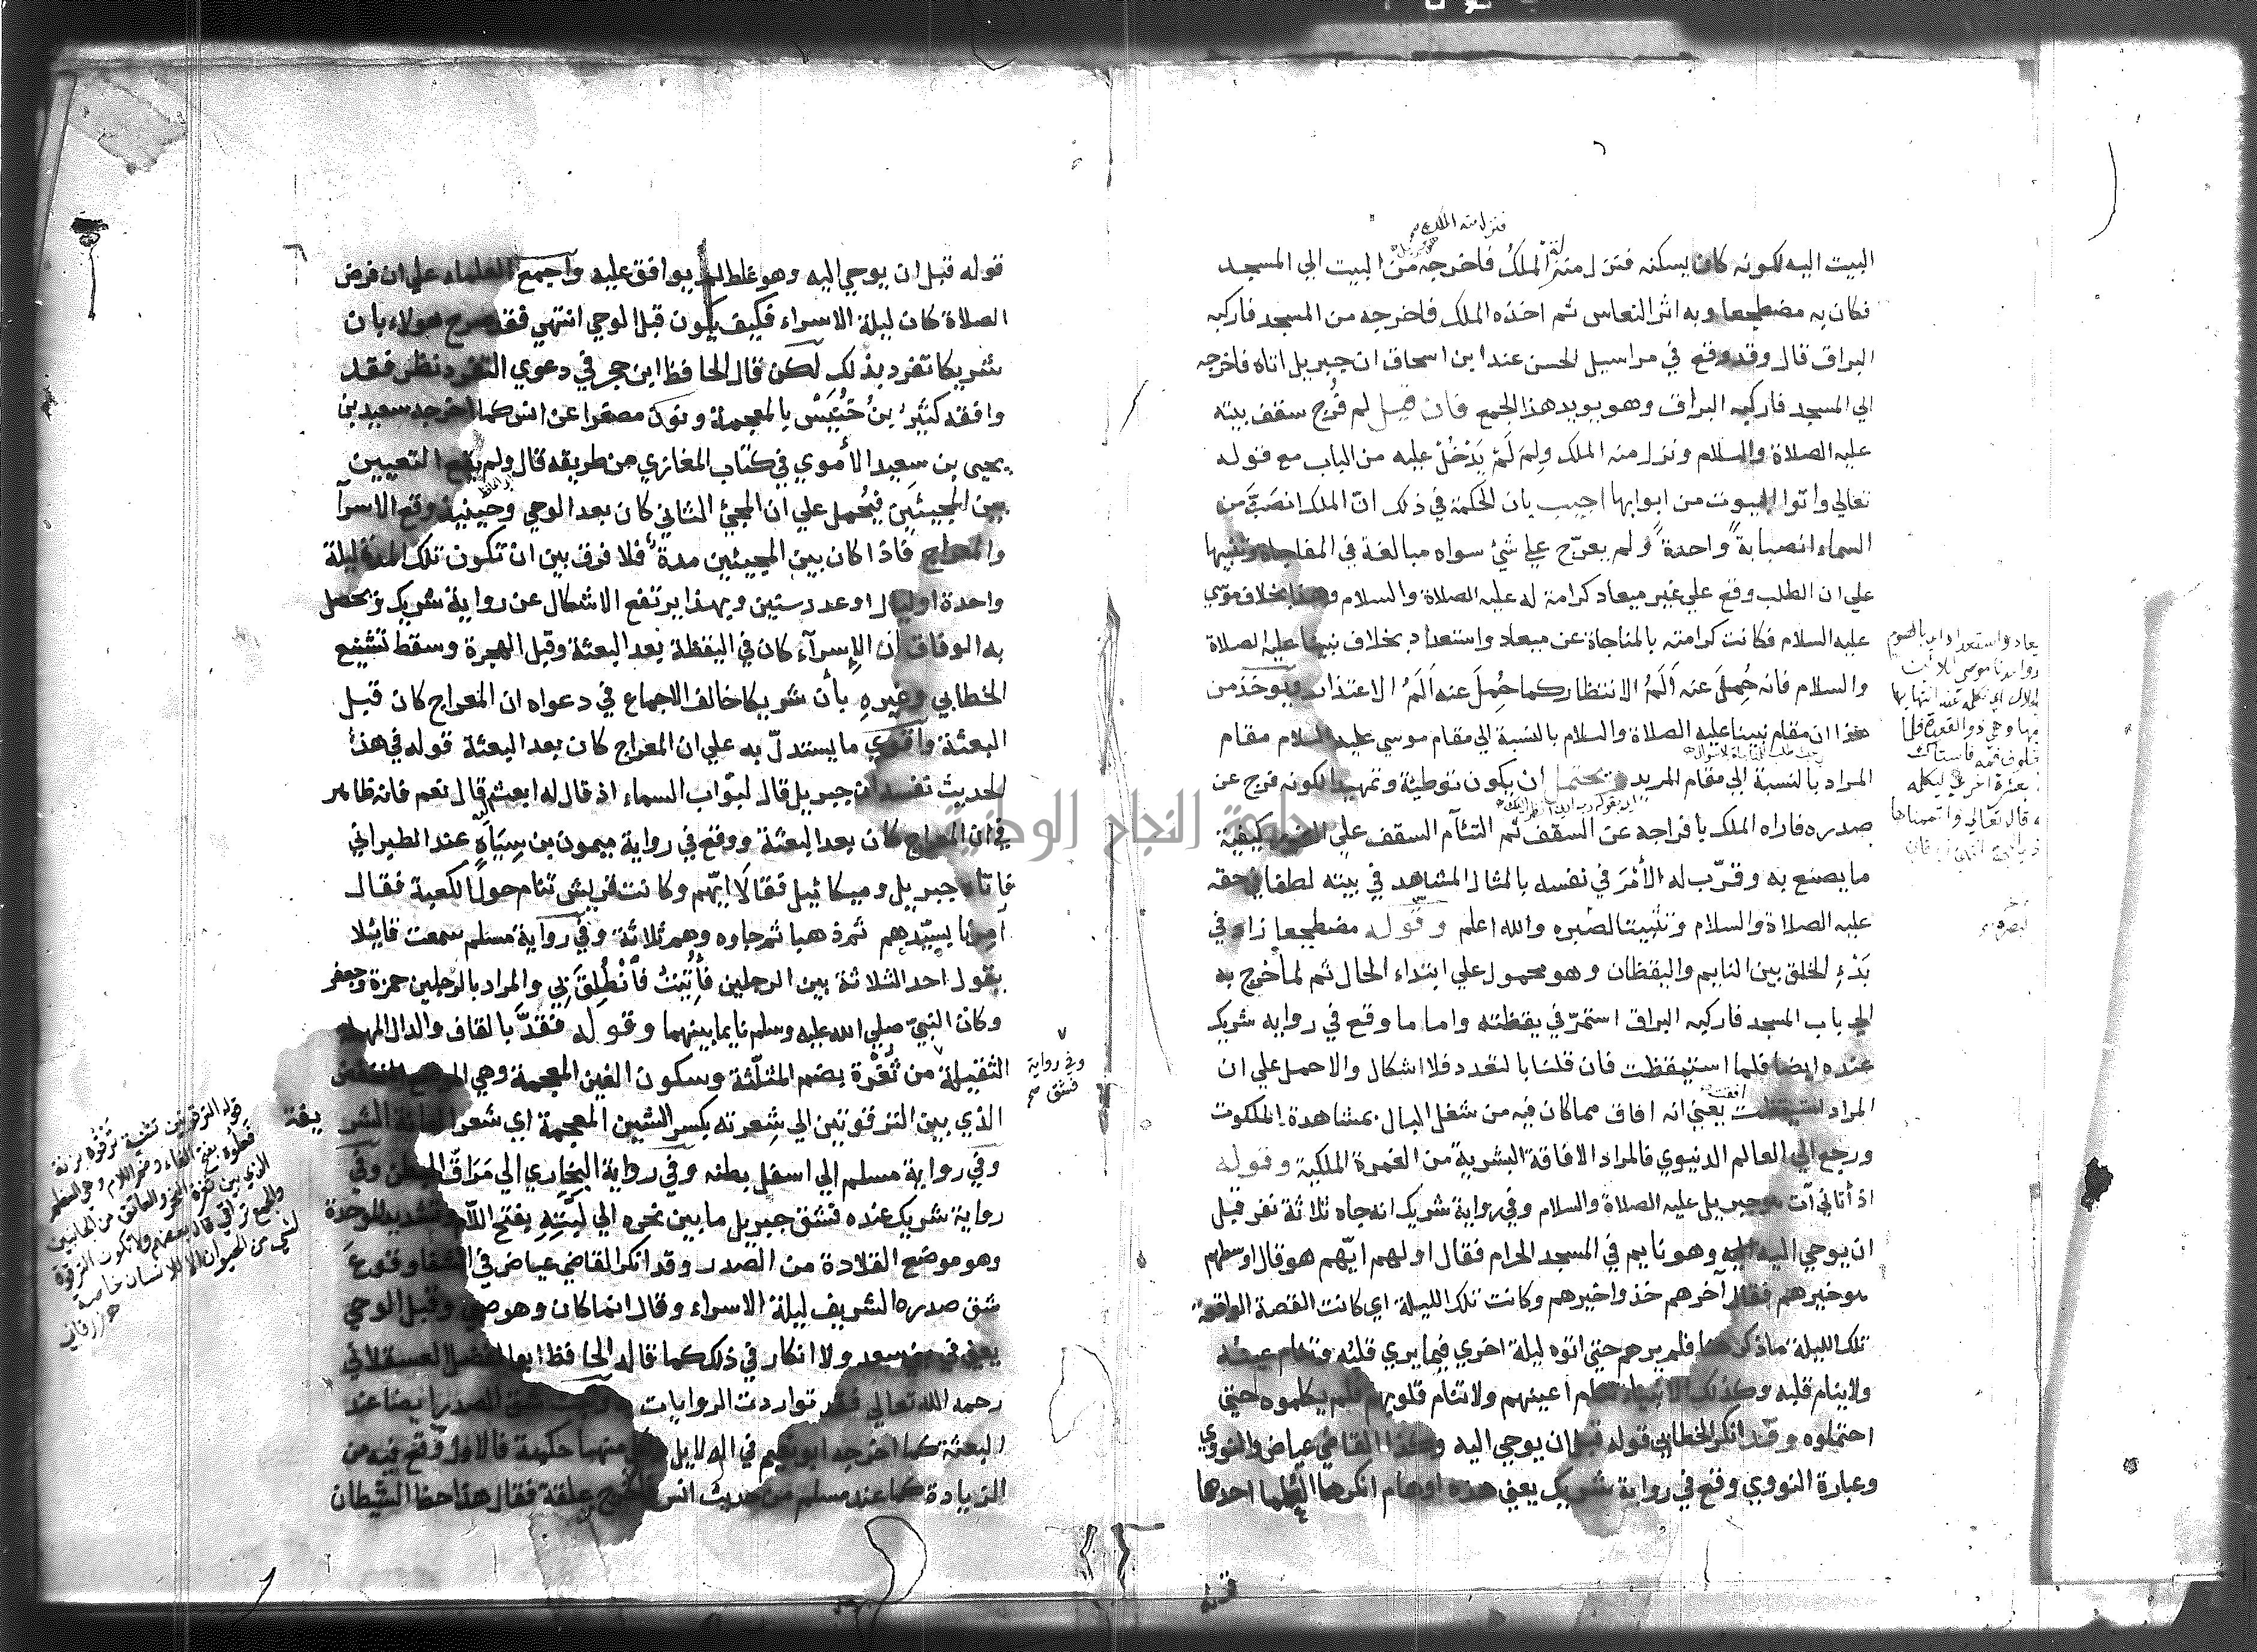 فنزل منه الملك
البيت اليه لكونه كان يسكنه فنزل منه الملك فاخرجه من البيت الي المسجد
فكان به مضطجعا وبه اثر النعاس ثم اخذه الملك فاخرجه من المسجد فاركبه
البراق قال وقد وقع في مراسيل الحسن عند ابن اسحاق ان جبريل اتاه فاخرجه
الي المسجد فاركبه البراق وهو يويد هذا الجمع فان قيل لم فُرج سقف بيته
عليه الصلاة والسلام ونزل منه الملك ولِمَ لَمْ يَدْخُلْ عليه من الباب مع قوله
تعالي وأتوا البيوت من ابوابها اجيب بان الحكمة في ذلك انّ الملك انصَبَّ من
السماء انصبابةً واحدةً ولم يعرّج علي شئ سواه مبالغة في المفاجاة وتنبيها
علي ان الطلب وقع علي غير ميعاد كرامة له عليه الصلاة والسلام وهذا بخلاف موسي
عليه السلام فكانت كرامته بالمناجاة عن ميعاد واستعداد بخلاف نبينا عليه الصلاة
والسلام فانه حُمِلَ عنه اَلَمُ الانتظار كما حُمِلَ عنه اَلَمُ الاعتذار ويوخذ من
هذا ان مقام نبينا عليه الصلاة والسلام بالنسبة الي مقام موسي عليه السلام مقام
المراد بالنسبة الي مقام المريد ويحتمل ان يكون توطئة وتمهيدا لكونه فرج عن
صدره فاراه الملك بافراجه عن السقف ثم التئام السقف علي الفور كيفية
ما يصنع به وقرّب له الأمْرَ في نفسه بالمثال المشاهد في بيته لطفا في حقه
عليه الصلاة والسلام وتثبيتا لصبره والله اعلم وقوله مضطجعا زاد في
بَدْءِ الخلق بين النايم واليقظان وهو محمول علي ابتداء الحال ثم لما خرج به
الي باب المسجد فاركبه البراق استمرّ في يقظته واما ما وقع في رواية شريك
عنده ايضا فلما استيقظت فان قلنا بالتعدد فلا اشكال والا حمل علي ان
المراد استيقظت يعني انه افاق مما كان فيه من شغل البال بمشاهدة الملكوت
ورجع الي العالم الدنيوي فالمراد الافاقة البشرية من الغمرة الملكية وقوله
اذ أتاني آت هو جبريل عليه الصلاة والسلام وفي رواية شريك انه جاه ثلاثة نفر قبل
ان يوحي اليه وهو نايم في المسجد الحرام فقال اولهم ايّهم هو قال اوسطهم
هو خيرهم فقال آخرهم خذوا خيرهم وكانت تلك الليلة اي كانت القصة الواقعة
تلك الليلة ما ذكر هنا فلم يرهم حتي اتوه ليلة اخري فيما يري قلبه وتنام عينه
ولا ينام قلبه وكذلك الانبياء تنام اعينهم ولا تنام قلوبهم فلم يكلموه حتي
احتملوه وقد انكر الخطابي قوله قبل ان يوحي اليه وكذا القاضي عياض والنووي
وعبارة النووي وقع في رواية شريك يعني هذه اوهام انكرها العلما احدها
قوله
قوله قبل ان يوحي اليه وهو غلط لم يوافق عليه واجمع العلماء علي ان فرض
الصلاة كان ليلة الاسراء فكيف يكون قبل الوحي انتهي فقد صرح هولاء بان
شريكا تفرد بذلك لكن قال الحافظ ابن حجر في دعوي التفرد نظر فقد
وافقه كثير بنُ خُنَيْسٍ بالمعجمة ونون مصغرا عن انس كما اخرجه سعيد بن
يحيي بن سعيد الأموي في كتاب المغازي من طريقه قال ولم يقع التعيين
بين المجيئين فيُحمل علي ان المجئ الثاني كان بعد الوحي وحينيذ وقع الاسرآ
والمعراج فاذا كان بين المجيئين مدة فلا فرق بين ان تكون تلك المدة ليلة
واحدة او ليال او عدد سنين وبهذا يرتفع الاشكال عن رواية شريك ويحصل
به الوفاق ان الإسرآء كان في اليقظة بعد البعثة وقبل الهجرة وسقط تشنيع
الخطابي وغيره بأن شريكا خالف الاجماع في دعواه ان المعراج كان قبل
البعثة واقوي ما يستدلّ به علي ان المعراج كان بعد البعثة قوله في هذا
الحديث نفسه ان جبريل قال لبوّاب السماء اذ قال له ابعث قال نعم فانه ظاهر
في ان المعراج كان بعد البعثة ووقع في رواية ميمون بن سِيَاهٍ عند الطبراني
فاتاه جبريل وميكائيل فقالا ايّهم وكانت قريش تنام حول الكعبة فقال
امرنا بسيّدهم ثم ذهبا ثم جاوه وهم ثلاثة وفي رواية مسلم سمعت قايلا
يقول احد الثلاثة بين الرجلين فأُتيتُ فأنْطُلِقَ بي والمراد بالرجلين حمزة وجعفر
وكان النبيّ صلي الله عليه وسلم نايما بينهما وقوله فقدَّ بالقاف والدال المهملة
الثقيلة من ثُغْرة بضم المثلّثة وسكون الغين المعجمة وهي الموضع المنخفض
الذي بين الترقوتين الي شِعرته بكسر الشين المعجمة اي شعر العانة الشريفة
وفي رواية مسلم الي اسفل بطنه وفي رواية البخاري الي مَرَاقِّ البطن وفي
رواية شريك عنده فشق جبريل ما بين نحره الي لَبَّتِهِ بفتح اللام وتشديد الموحدة
وهو موضع القلادة من الصدر وقد انكر القاضي عياض في الشفا وقوعَ
شق صدره الشريف ليلة الاسراء وقال انما كان وهو صبي وقبل الوحي
يعني في بني سعد ولا انكار في ذلك كما قاله الحافظ ابو الفضل العسقلاني
رحمه الله تعالي فقد تواردت الروايات وثبت شق الصدر ايضا عند
البعثة كما اخرجه ابو نعيم في الدلايل منهما حكمة فالاول وقع فيه من
الزيادة كما عند مسلم من حديث انس فاخرج علقة فقال هذا حظ الشيطان
وفي رواية
فشق صح
قوله الترقوتين تثنية ترقوه بزنة
فعلوة بفتح الفاء وضم اللام وهي العظم
الذي بين ثغرة النحر والعاتق من الجانبين
والجمع تراقي قال بعضهم ولا تكون الترقوة
لشئ من الحيوان الا للانسان خاصة
زرقاني
جامعة النجاح الوطنية